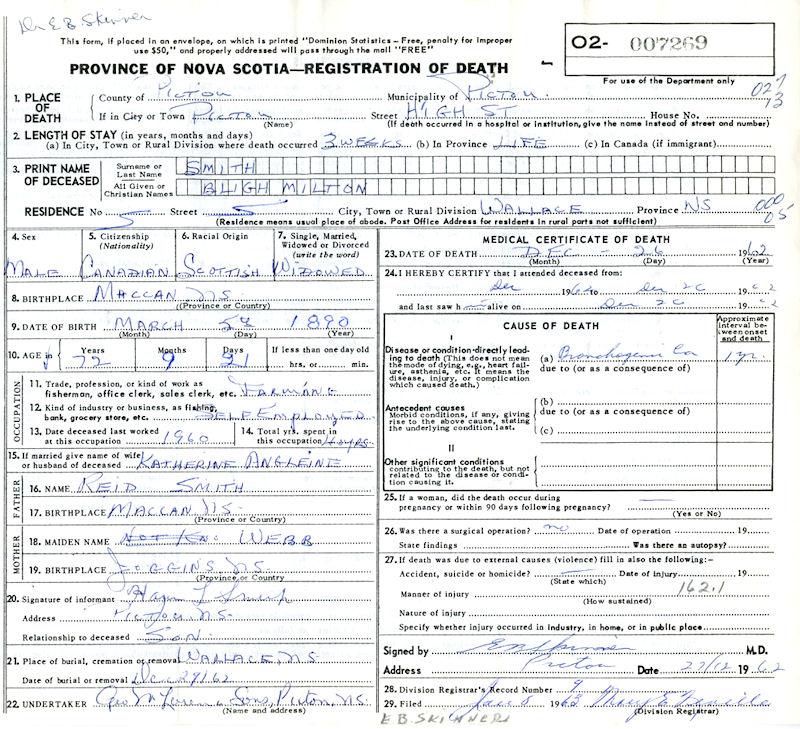 Dr E B Skinner
This form, if placed in an envelope, on which is printed "Dominion Statistics - Free, penalty for improper
use $50," and properly addressed will pass through the mail "FREE"
02- 007269
PROVINCE OF NOVA SCOTIA—REGISTRATION OF DEATH
For use of the Department only
1. PLACE OF DEATH County of Pictou Municipality of Pictou. 027
If in City or Town Pictou Street HIGH ST House No. 13
(Name) (If death occurred in a hospital or institution, give the name instead of street and number)
2. LENGTH OF STAY (in years, months and days)
(a) In City, Town or Rural Division where death occurred 3 WEEKS (b) In Province LIFE (c) In Canada (if immigrant)
3. PRINT NAME OF DECEASED Surname or Last Name SMITH
All Given or Christian Names BLIGH MILTON
RESIDENCE No Street City, Town or Rural Division WALLACE Province NS 000
05
(Residence means usual place of abode. Post Office Address for residents in rural parts not sufficient)
4. Sex 5. Citizenship (Nationality) 6. Racial Origin 7. Single, Married, Widowed or Divorced (write the word)
MALE CANADIAN SCOTTISH WIDOWED
8. BIRTHPLACE MACCAN N.S.
(Province or Country)
9. DATE OF BIRTH MARCH 5th 1890
(Month) (Day) (Year)
10. AGE in Years Months Days If less than one day old
72 9 21 hrs. or min.
OCCUPATION
11. Trade, profession, or kind of work as
fisherman, office clerk, sales clerk, etc. FARMING
12. Kind of industry or business, as fishing,
bank, grocery store, etc. SELF EMPLOYED
13. Date deceased last worked
at this occupation 1960
14. Total yrs. spent in
this occupation yrs.
15. If married give name of wife
or husband of deceased KATHERINE ANGLEINE
FATHER
16. NAME REID SMITH
17. BIRTHPLACE MACCAN N.S.
(Province or Country)
MOTHER
18. MAIDEN NAME NOT KN. WEBB
19. BIRTHPLACE JOGGINS N.S.
(Province or Country)
20. Signature of informant
Address PICTOU, N.S.
Relationship to deceased SON.
21. Place of burial, cremation or removal WALLACE, N.S.
Date of burial or removal Dec 29/62
22. UNDERTAKER Geo McLaren & Sons, Pictou, N.S.
(Name and address)
MEDICAL CERTIFICATE OF DEATH
23. DATE OF DEATH DEC - 26 1962
(Month) (Day) (Year)
24. I HEREBY CERTIFY that I attended deceased from:
Dec 1962 to Dec 26 1962
and last saw h alive on Dec 26 1962
CAUSE OF DEATH
Approximate interval between onset and death
I
Disease or condition directly leading to death (This does not mean the mode of dying, e.g., heart failure, asthenia, etc. It means the disease, injury, or complication which caused death.)
(a) Bronchogenic Ca 1 yr.
due to (or as a consequence of)
Antecedent causes
Morbid conditions, if any, giving rise to the above cause, stating the underlying condition last.
(b)
due to (or as a consequence of)
(c)
II
Other significant conditions
contributing to the death, but not related to the disease or condition causing it.
25. If a woman, did the death occur during
pregnancy or within 90 days following pregnancy?
(Yes or No)
26. Was there a surgical operation? no Date of operation 19
State findings Was there an autopsy?
27. If death was due to external causes (violence) fill in also the following:-
Accident, suicide or homicide? Date of injury 19
(State which)
Manner of injury 162.1
(How sustained)
Nature of injury
Specify whether injury occurred in industry, in home, or in public place
Signed by EB Skinner M.D.
Address Pictou Date 27/12 1962
28. Division Registrar's Record Number 9
29. Filed Jan 8 1963 Mary E
(Division Registrar)
E B. SKINNER